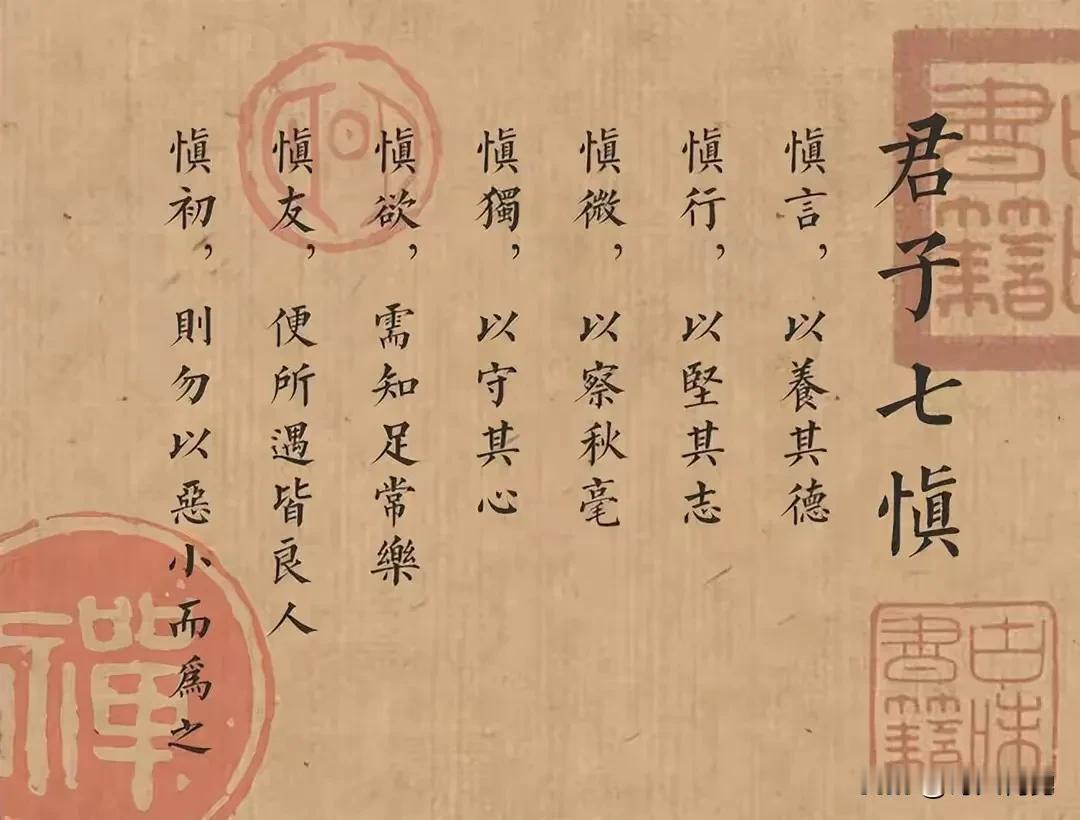 君子七慎
慎言，以養其德
慎行，以堅其志
慎微，以察秋毫
慎獨，以守其心
慎欲，需知足常樂
慎友，便所遇皆良人
慎初，則勿以惡小而為之
書籍
禪
書籍